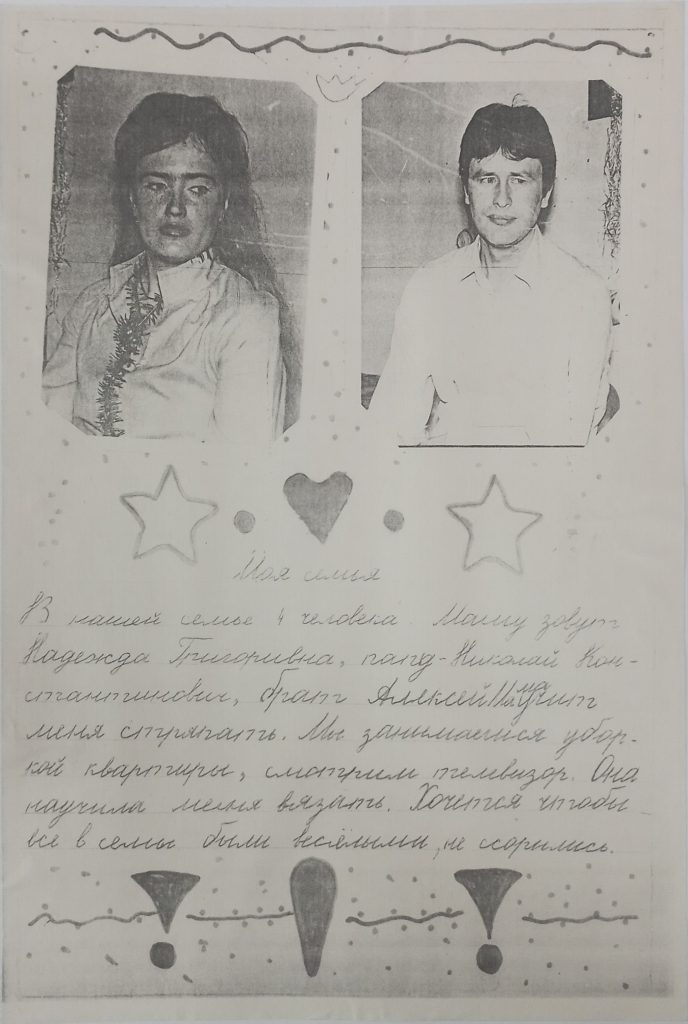 Моя семья
В нашей семье 4 человека. Маму зовут
Надежда Григоривна, папа - Николай Кон-
стантинович, брат Алексей. Мама учит
меня стряпать. Мы занимаемся убор-
кой квартиры, смотрим телевизор. Она
научила меня вязать. Хочется чтобы
все в семье были весёлыми, не ссорились.